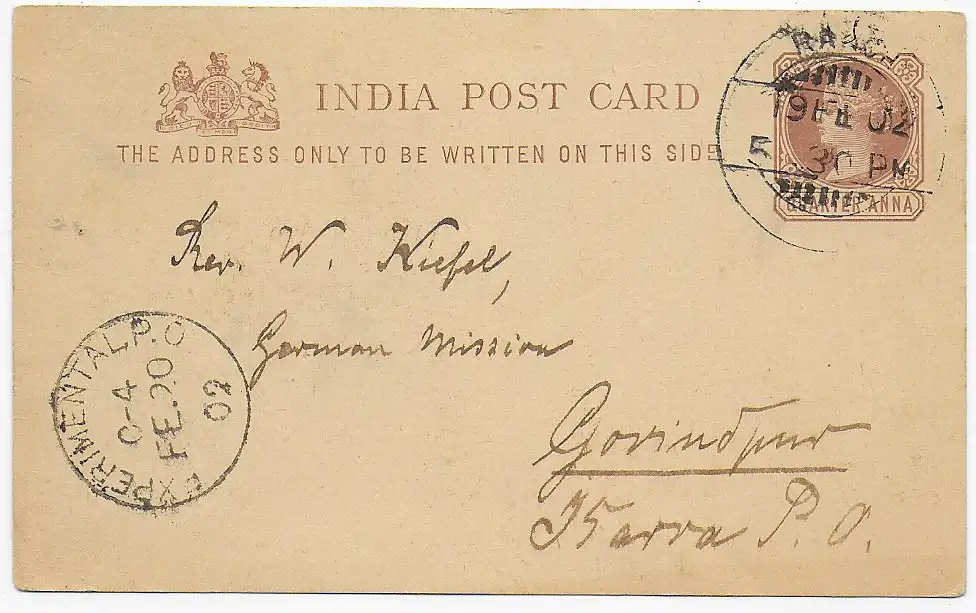 INDIA POST CARD
THE ADDRESS ONLY TO BE WRITTEN ON THIS SIDE
RANCHI
19 FE 02
5 30 PM
QUARTER ANNA
Rev. W. Kiefel,
German Mission
Govindpur
Karra P. O.
EXPERIMENTAL P.O
C-4
FE.20
02